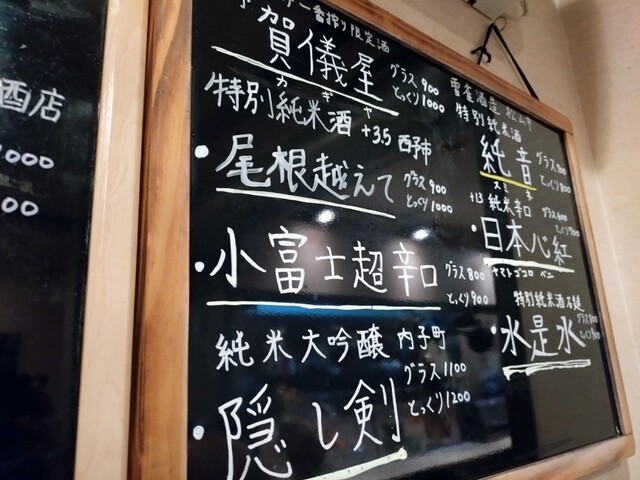 酒店
一番搾り限定酒
賀儀屋
カギヤ
グラス 900
とっくり 1000
特別純米酒 +3.5 西予市
・尾根越えて
グラス 900
とっくり 1000
・小富士超辛口
グラス 800
とっくり 900
純米大吟醸 内子町
グラス 1100
とっくり 1200
・隠し剣
雪雀酒造 松山市
特別純米酒
純音
スミネ
グラス
とっくり 800
+13 純米辛口
・日本心紅
ヤマトゴコロ ベニ
グラス
とっくり
特別純米酒 石鎚
・水是水
グラス 800
とっくり 900